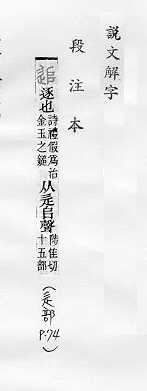 說文解字
段注本
追 逐也 詩禮假爲治
金玉之鎚 从辵𠂤聲 陟隹切
十五部 （辵部
P.74）